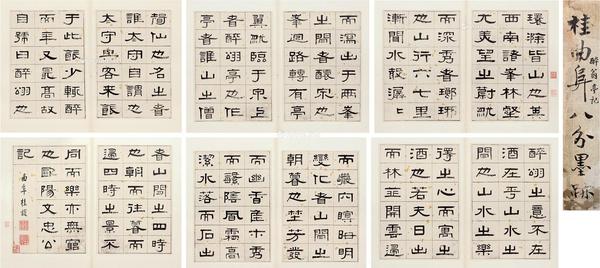 桂曲阜八分墨跡
醉翁亭記
環滁皆山也其
西南諸峯林壑
尤美望之蔚然
而深秀者瑯琊
也山行六七里
漸聞水聲潺潺
而瀉出于兩峯
之間者釀泉也
峯迴路轉有亭
翼然臨于泉上
者醉翁亭也作
亭者誰山之僧
智仙也名之者
誰太守自謂也
太守與客來飲
于此飲少輒醉
而年又最高故
自號曰醉翁也
醉翁之意不在
酒在乎山水之
間也山水之樂
得之心而寓之
酒也若夫日出
而林霏開雲歸
而巖穴暝晦明
變化者山間之
朝暮也野芳發
而幽香佳木秀
而繁陰風霜高
潔水落而石出
者山間之四時
也朝而往暮而
歸四時之景不
同而樂亦無窮
也歐陽文忠公
記
曲阜桂馥